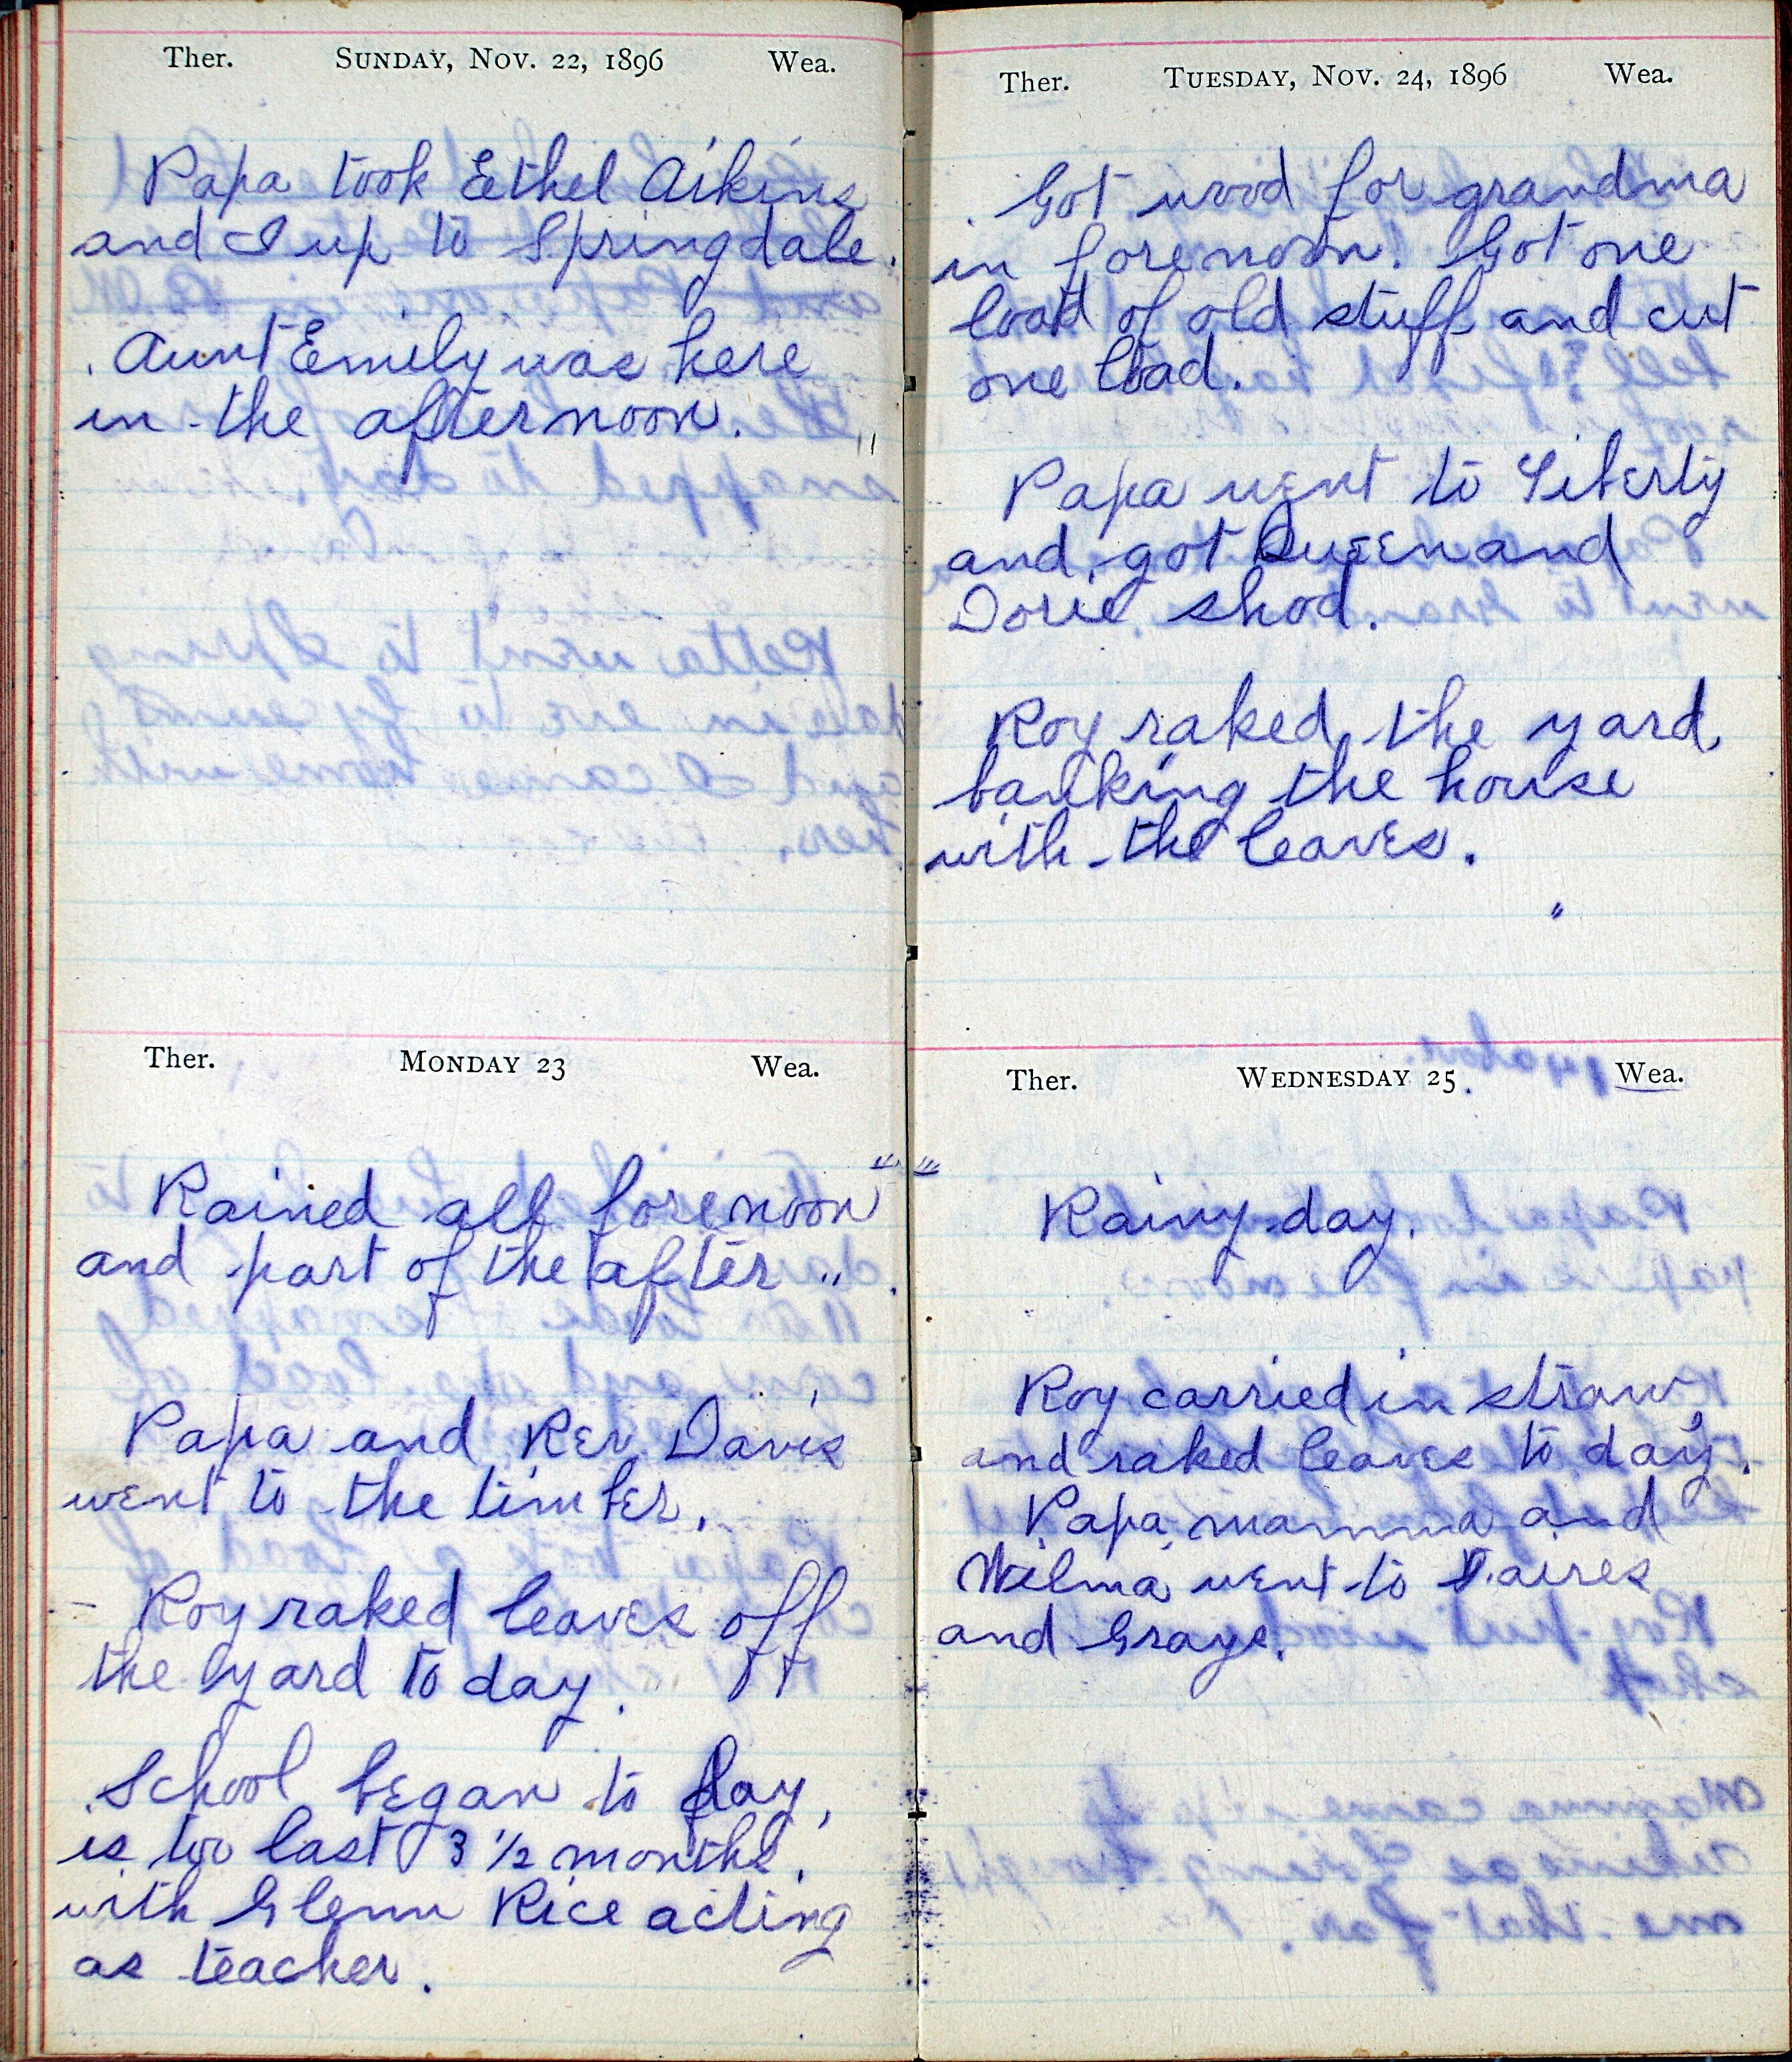 Ther. SUNDAY, NOV. 22, 1896 Wea.
Papa took Eethel Aikins
and I up to Springdale.
Aunt Emily was here
in the afternoon.
Ther. MONDAY 23 Wea.
Rained all forenoon
and part of the after "
Papa and Rev. Davis
went to the timber.
Roy raked leaves off
the yard to day.
School began to day,
is too last 3 1/2 months,
with Glenn Rice acting
as teacher.
Ther. TUESDAY, NOV. 24, 1896 Wea.
Got wood for grandma
in forenoon. Got one
load of old stuff and cut
one load.
Papa went to Liberty
and got Queen and
Dorie shod.
Roy raked the yard,
banking the house
with the leaves.
Ther. WEDNESDAY 25. Wea.
Rainy day.
Roy carried in straw,
and raked leaves to day.
Papa, mamma and
Wilma went to
and Grays.